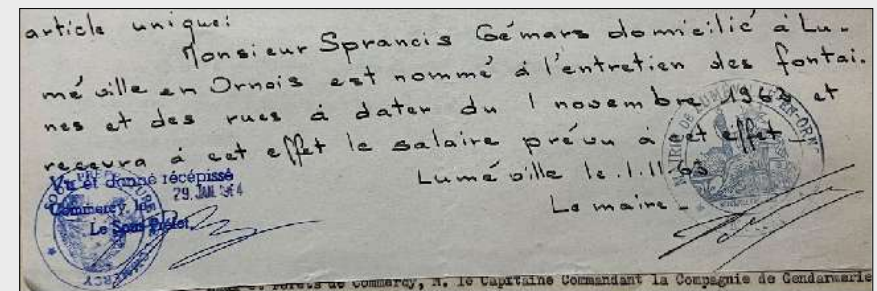 article unique:
Monsieur Sprancis Gémars domicilié à Lu-
méville en Ornois est nommé à l'entretien des fontai.
nes et des rues à dater du 1 novembre 1963 et
recevra à cet effet le salaire prévu à cet effet
Luméville le 1.11.63
Le maire -
Vu et donné récépissé
29. JAN. 1964
Commercy, le
Le Sous-Préfet,
MAIRIE DE LUMÉVILLE-EN-ORN
COMMERCY
de Commercy, M. le Capitaine Commandant la Compagnie de Gendarmerie